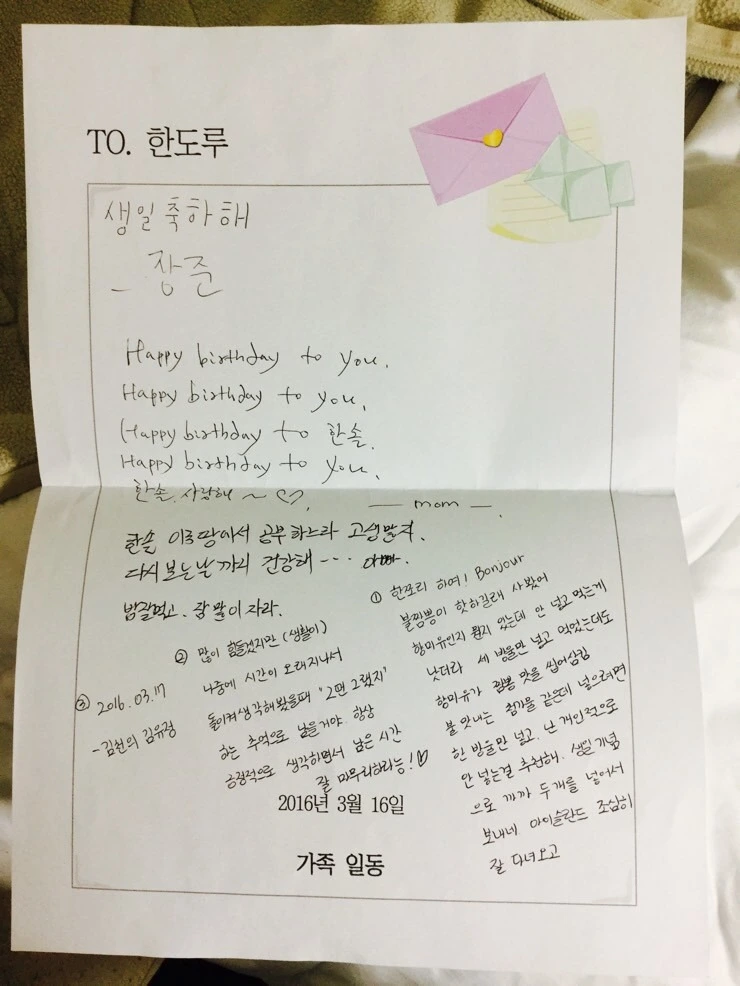 TO. 한도루
생일축하해
- 장준
Happy birthday to you.
Happy birthday to you,
Happy birthday to 한솔.
Happy birthday to you,
한솔 사랑해 ~ ♡,
— mom —.
한솔 이국땅에서 공부하느라 고생많지.
다시보는날까지 건강해 --- 아빠.
밥잘먹고. 잘 많이 자라.
① 한쪼리 하여! Bonjour
불짬뽕이 핫하길래 사봤어
향미유인지 뭔지 있는데 안 넣고 먹는게
낫더라 세 방울만 넣고 먹었는데도
향미유가 짬뽕 맛을 씹어삼킴
불 맛내는 첨가물 같은데 넣으려면
한 방울만 넣고. 난 개인적으로
안 넣는걸 추천해. 생일기념
으로 까까 두개를 넣어서
보내네 아이슬란드 조심히
잘 다녀오고
② 많이 힘들겠지만 (생활이)
나중에 시간이 오래지나서
돌이켜생각해봤을때 "그땐 그랬지"
하는 추억으로 남을거야. 항상
긍정적으로 생각하면서 남은 시간
잘 마무리하라능!♡
③ 2016.03.17
- 김천의 김유정
2016년 3월 16일
가족 일동